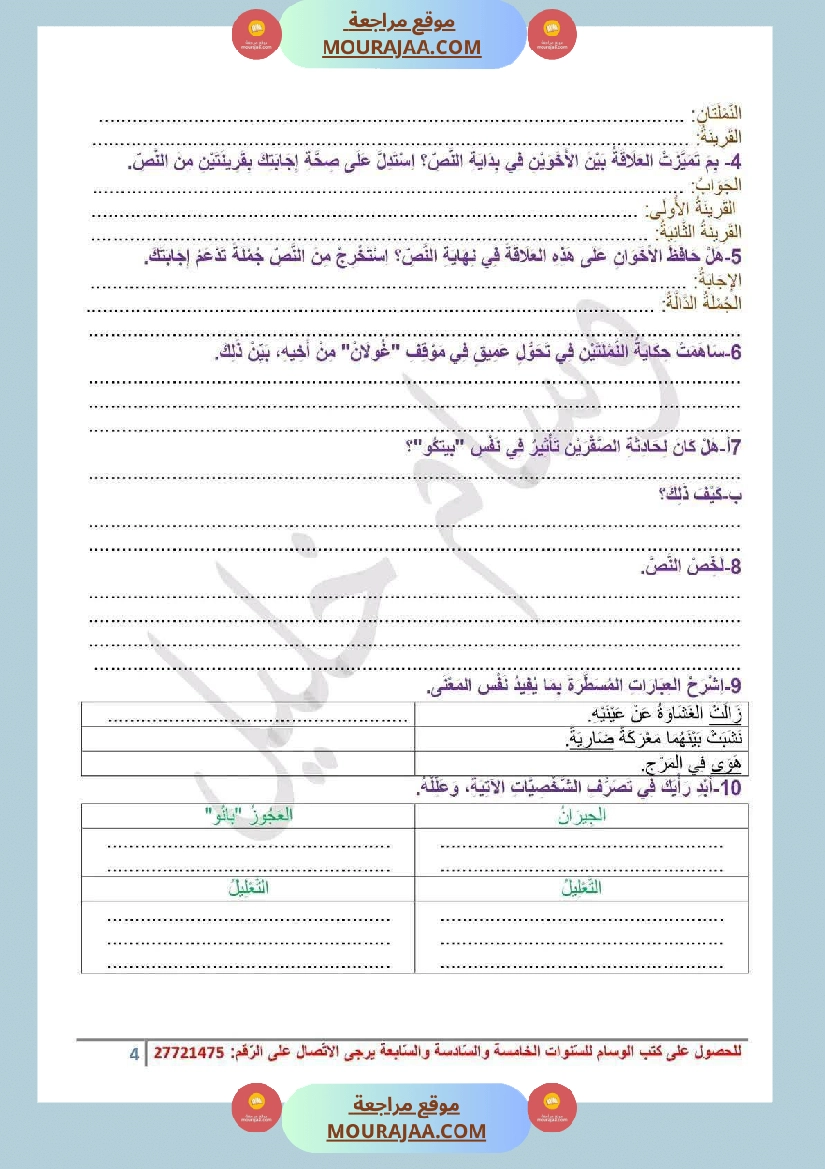 موقع مراجعة
MOURAJAA.COM
النَّمْلَتَانِ: ............................................................
القَرِينَةُ: ............................................................
4- بِمَ تَمَيَّزَتْ العَلَاقَةُ بَيْنَ الأَخَوَيْنِ فِي بِدَايَةِ النَّصِّ؟ اِسْتَدِلَّ عَلَى صِحَّةِ إِجَابَتِكَ بِقَرِينَتَيْنِ مِنَ النَّصِّ.
الجَوَابُ: ............................................................
القَرِينَةُ الأُولَى: ............................................................
القَرِينَةُ الثَّانِيَةُ: ............................................................
5-هَلْ حَافَظَ الأَخَوَانِ عَلَى هَذِهِ العَلَاقَةِ فِي نِهَايَةِ النَّصِّ؟ اِسْتَخْرِجْ مِنَ النَّصِّ جُمْلَةً تَدْعَمُ إِجَابَتَكَ.
الإِجَابَةُ: ............................................................
الجُمْلَةُ الدَّالَّةُ: ............................................................
............................................................
6-سَاهَمَتْ حِكَايَةُ النَّمْلَتَيْنِ فِي تَحَوُّلٍ عَمِيقٍ فِي مَوْقِفِ "غُولَانْ" مِنْ أَخِيهِ، بَيِّنْ ذَلِكَ.
............................................................
............................................................
............................................................
7أ-هَلْ كَانَ لِحَادِثَةِ الصَّقْرَيْنِ تَأْثِيرٌ فِي نَفْسِ "بيتكُو"؟
............................................................
ب-كَيْفَ ذَلِكَ؟
............................................................
............................................................
8-لَخِّصْ النَّصَّ.
............................................................
............................................................
............................................................
............................................................
9-اِشْرَحْ العِبَارَاتِ المُسَطَّرَةَ بِمَا يُفِيدُ نَفْسَ المَعْنَى.
زَالَتْ الغَشَاوَةُ عَنْ عَيْنَيْهِ. ..................................................
نَشَبَتْ بَيْنَهُما مَعْرَكَةٌ ضَارِيَةٌ.
هَوَى فِي المَرْجِ.
10-أَبْدِ رَأْيَكَ فِي تَصَرُّفِ الشَّخْصِيَّاتِ الآتِيَةِ، وَعَلِّلْهُ.
الجِيرَانُ العَجُوزُ "بَانُو"
.................................................. ..................................................
.................................................. ..................................................
التَّعْلِيلُ التَّعْلِيلُ
.................................................. ..................................................
.................................................. ..................................................
.................................................. ..................................................
للحصول على كتب الوسام للسّنوات الخامسة والسّادسة والسّابعة يرجى الاتّصال على الرّقم: 27721475 4
وسام خليل
موقع مراجعة
MOURAJAA.COM